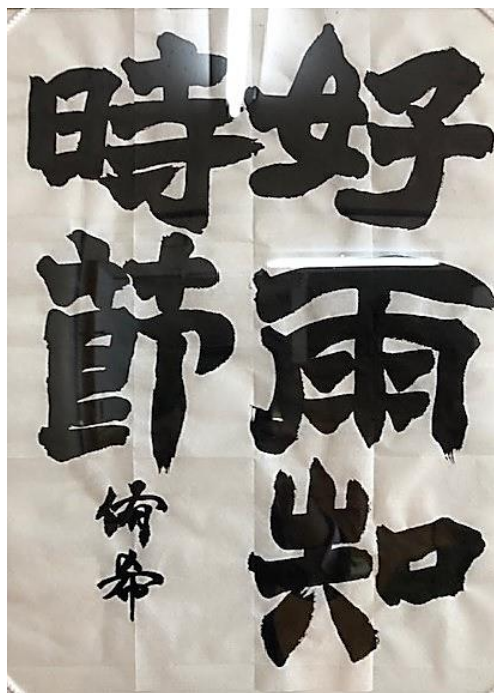 好雨知
時節
侑希